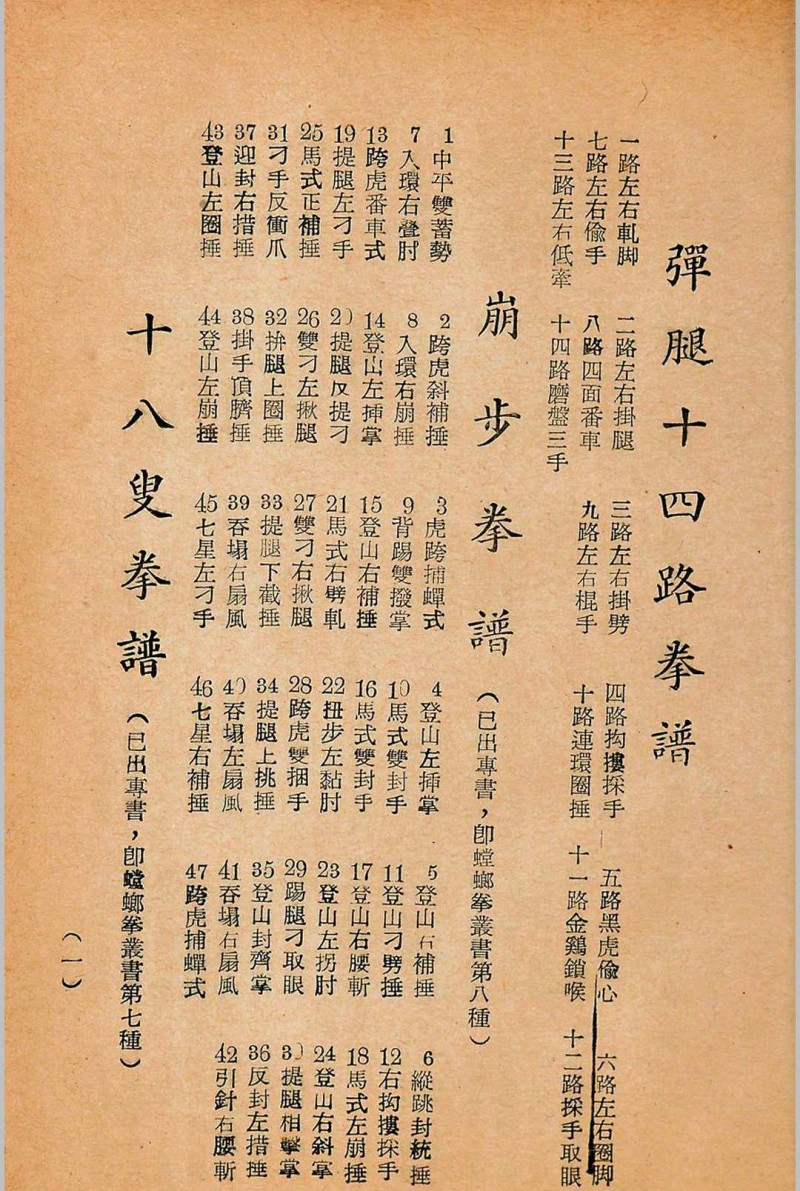 彈腿十四路拳譜
一路左右軋脚　二路左右掛腿　三路左右掛劈　四路抅摟採手　五路黑虎偸心　六路左右圈脚
七路左右偸手　八路四面番車　九路左右棍手　十路連環圈捶　十一路金鷄鎖喉　十二路採手取眼
十三路左右低牽　十四路磨盤三手
崩步拳譜（已出專書，卽螳螂拳叢書第八種）
1中平雙蓄勢　2跨虎斜補捶　3虎跨捕蟬式　4登山左揷掌　5登山右補捶　6縱跳封統捶
7入環右叠肘　8入環右崩捶　9背踢雙撥掌　10馬式雙封手　11登山刁劈捶　12右抅摟採手
13跨虎番車式　14登山左揷掌　15登山右補捶　16馬式雙封手　17登山右腰斬　18馬式左崩捶
19提腿左刁手　20提腿反提刁　21馬式右劈軋　22扭步左黏肘　23登山左拐肘　24登山右斜掌
25馬式正補捶　26雙刁左揪腿　27雙刁右揪腿　28跨虎雙捆手　29踢腿刁取眼　30提腿相擊掌
31刁手反衝爪　32拚腿上圈捶　33提腿下截捶　34提腿上挑捶　35登山封齊掌　36反封左措捶
37迎封右措捶　38掛手頂臍捶　39吞塌右扇風　40吞塌左扇風　41吞塌右扇風　42引針右腰斬
43登山左圈捶　44登山左崩捶　45七星左刁手　46七星右補捶　47跨虎捕蟬式
十八叟拳譜（已出專書，卽螳螂拳叢書第七種）
（一）